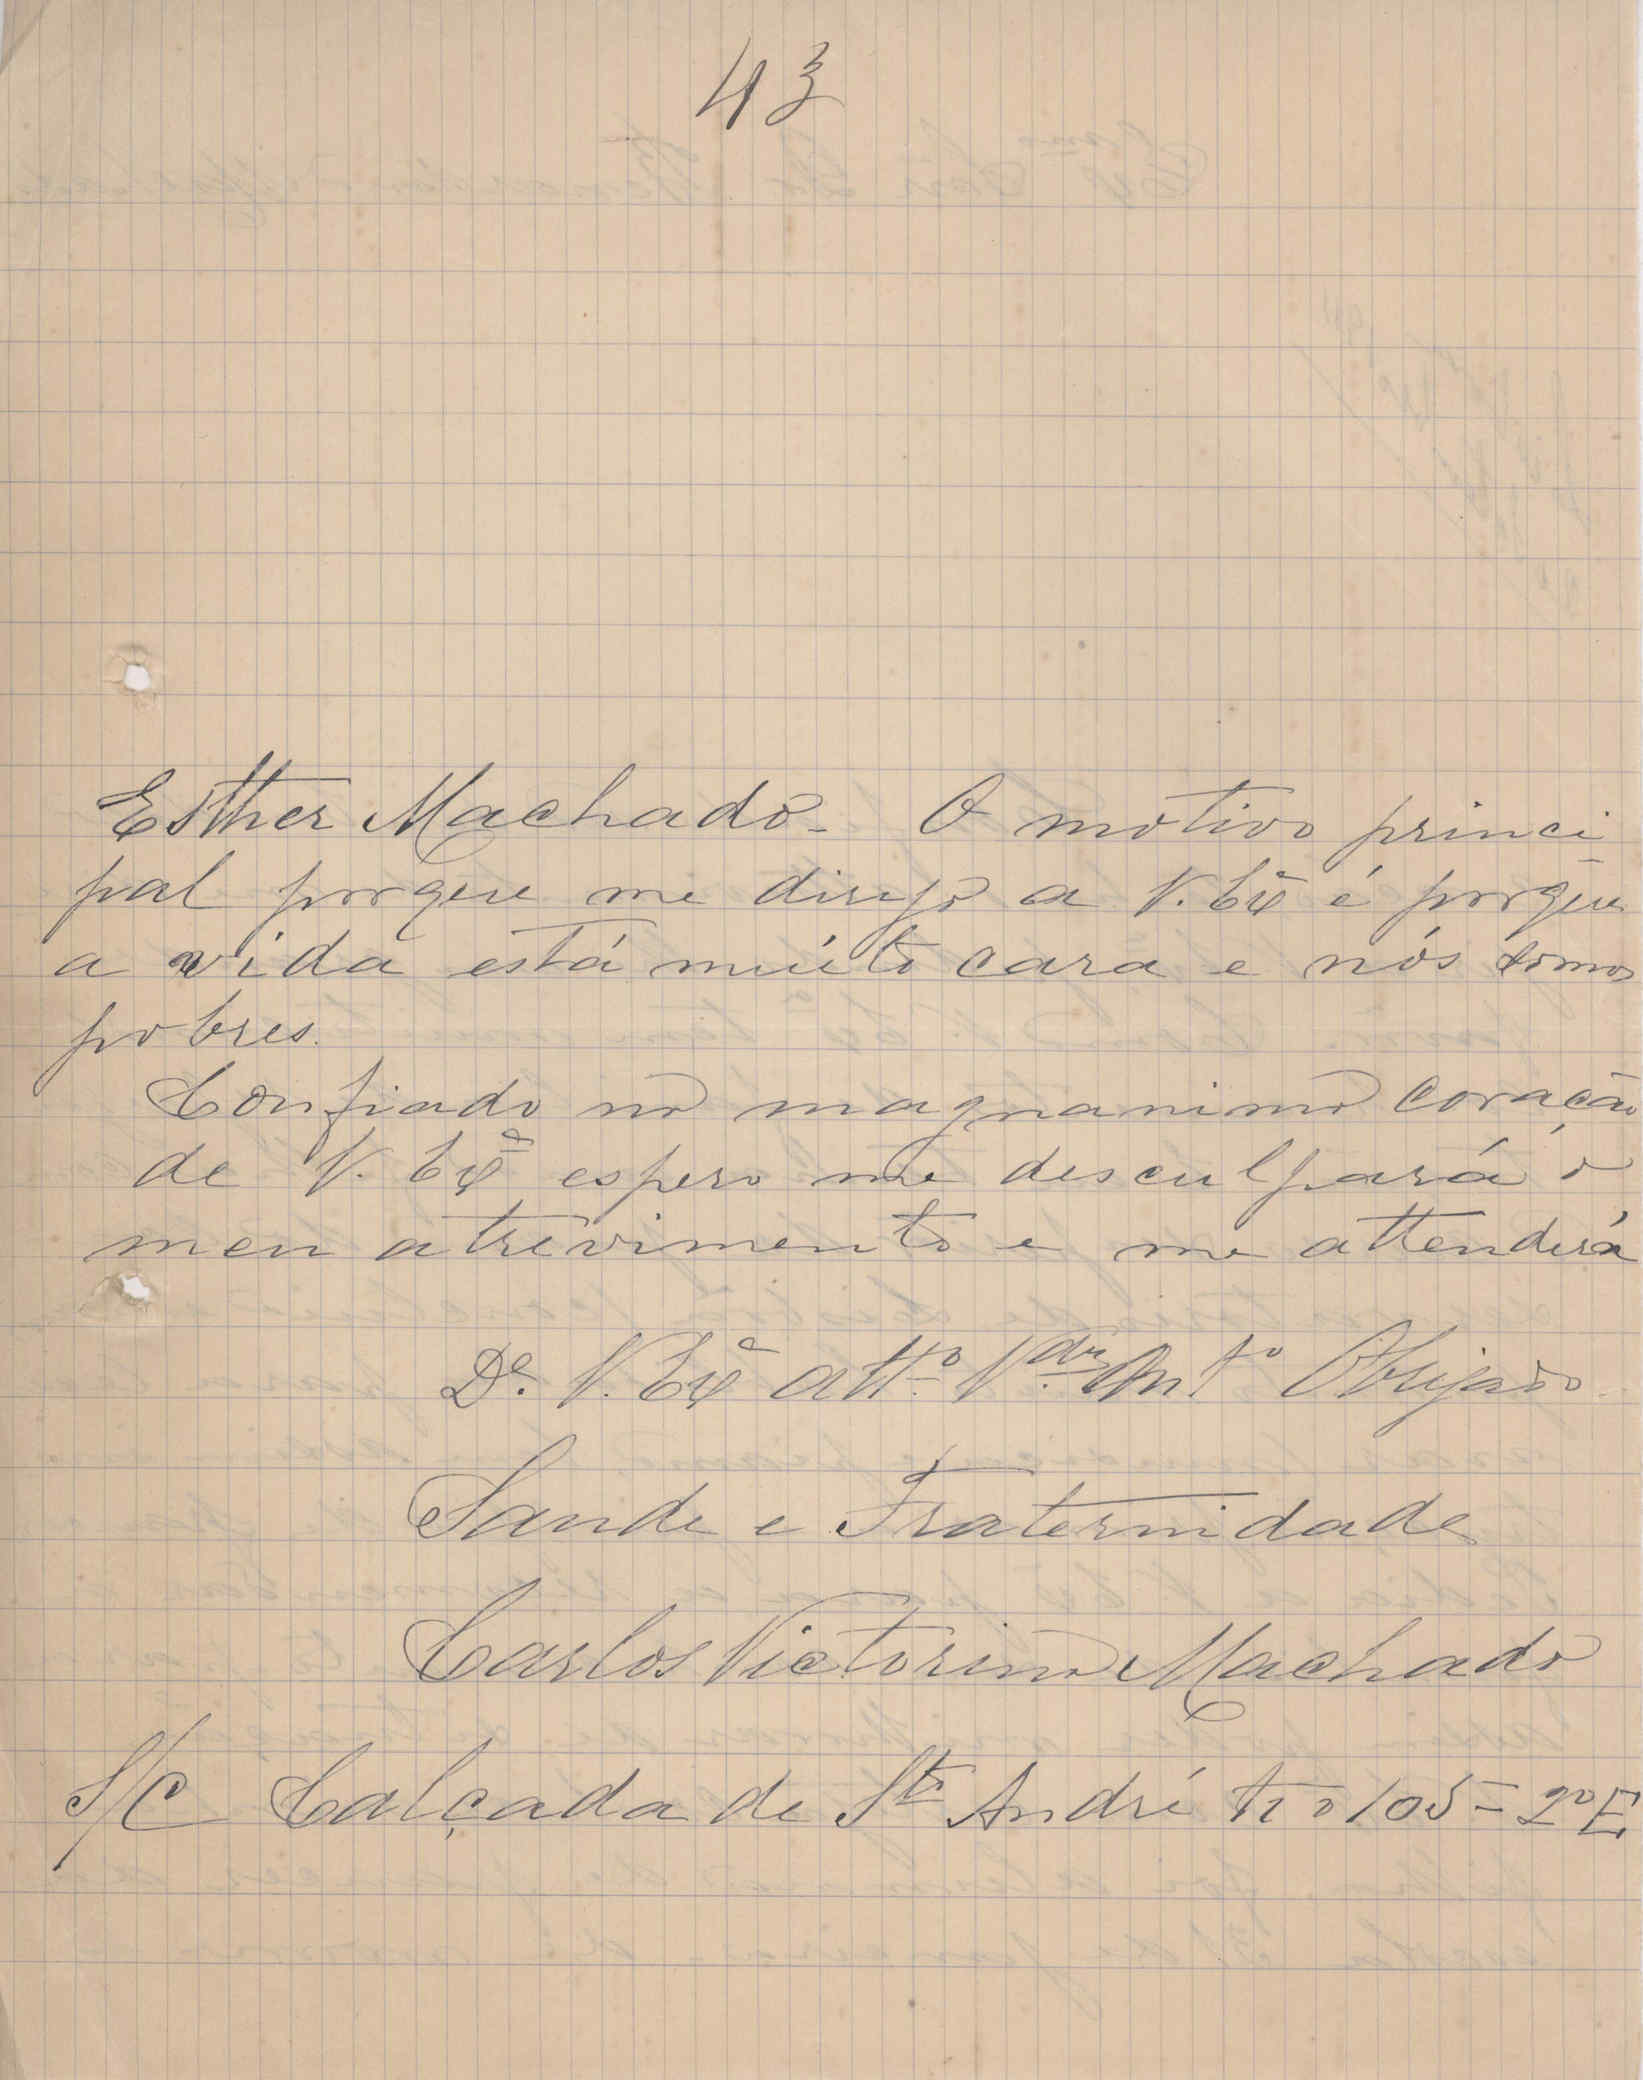 43
Esther Machado - O motivo princi
pal porque me dirijo a V. Exª é porque
a vida está muito cara e nós somos
pobres.
Confiado no magnanimo coração
de V. Exª espero me desculpará o
meu atrevimento e me attenderá
De. V. Exª attº Vdºr Mtº Obrigado
Saude e Fraternidade
Carlos Victorino Machado
S/C Calçada de Stº André nº 105 - 2º E